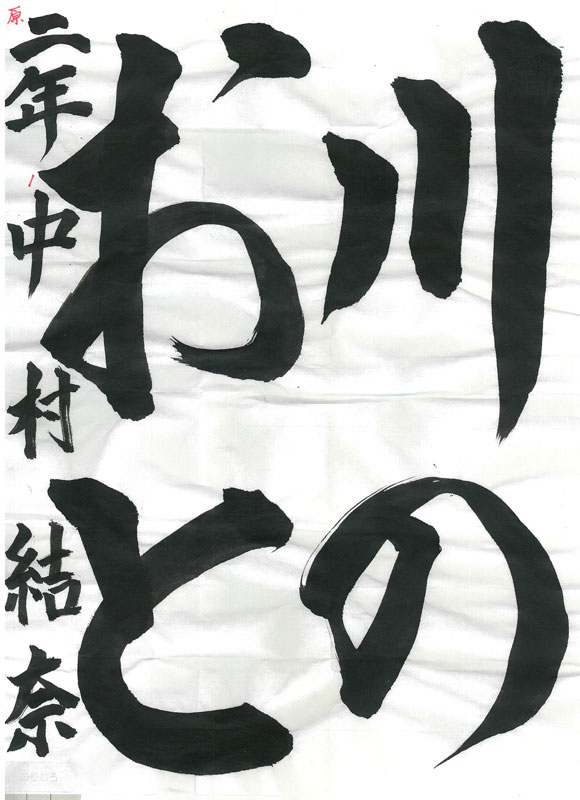 川の
おと
二年 中村 結奈
原